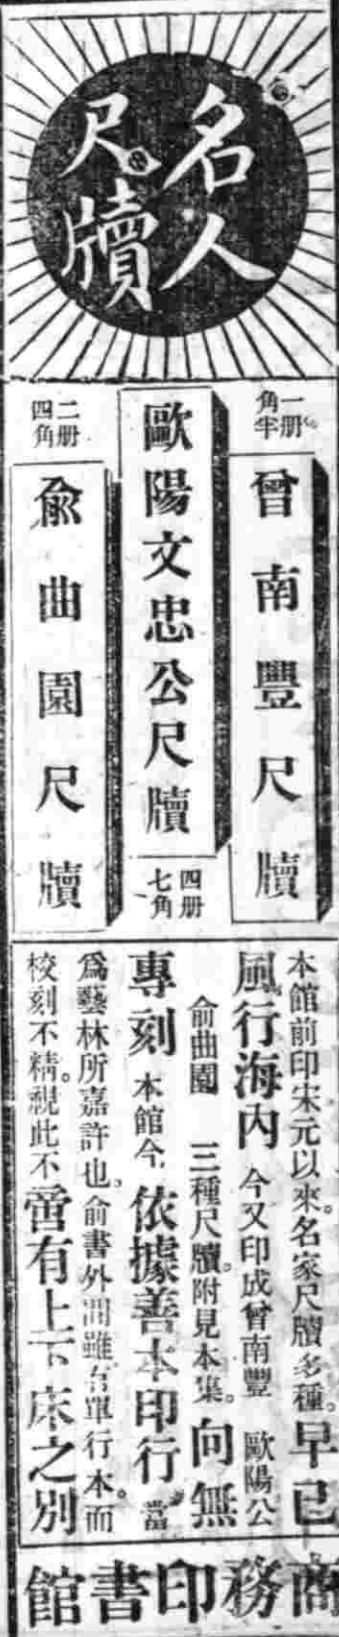 名人
尺牘
曾南豐尺牘
一册
角半
歐陽文忠公尺牘
四册
七角
俞曲園尺牘
二册
四角
本館前印宋元以來。名家尺牘多種。早已
風行海內 今又印成曾南豐 歐陽公
俞曲園 三種尺牘。附見本集。向無
專刻 本館今 依據善本印行 當
爲藝林所嘉許也。俞書外間雖有單行本。而
校刻不精。視此不啻有上下床之別
商務印書館